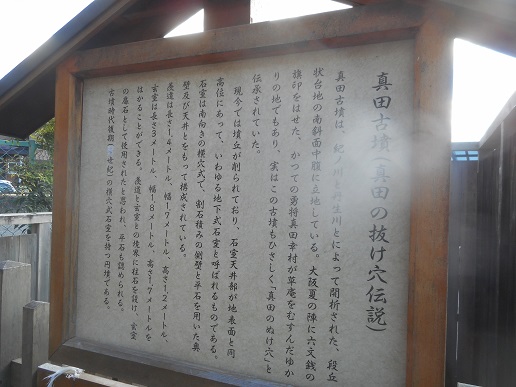 真田古墳(真田の抜け穴伝説)
真田古墳は、紀ノ川と丹生川とによって開析された、段丘
状台地の南斜面中腹に立地している。大阪夏の陣に六文銭の
旗印をはせた、かつての勇将真田幸村が草庵をむすんだゆか
りの地でもあり、実はこの古墳もひさしく「真田のぬけ穴」と
伝承されていた。
現今では墳丘が削られており、石室天井部が地表面と同
高位にあって、いわゆる地下式石室と呼ばれるものである。
石室は南向きの横穴式で、割石積みの側壁と平石を用いた奥
壁及び天井とをもって構成されている。
羨道は長さ1.4メートル、幅1.7メートル、高さ1.2メートル、
玄室は長さ3メートル、幅1.8メートル、高さ1.7メートルを
はかることができる。羨道と玄室との境界に柱石を設け、玄室
の扉石として使用されたと思われ、平石も認められる。
古墳時代後期(世紀)の横穴式石室を持つ円墳である。